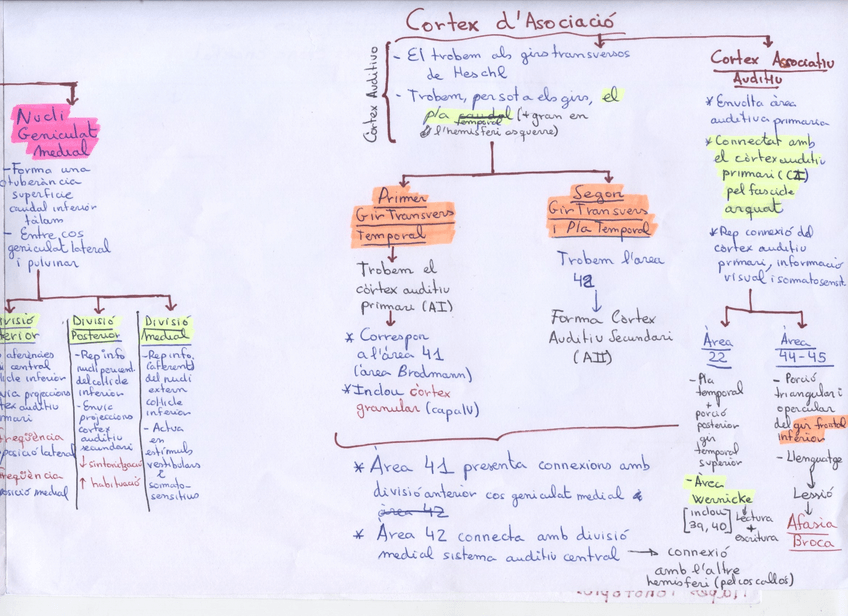 Cortex d'Asociació
Cortex Auditivo
- El trobem als girs transversos
de Heschl
- Trobem, per sota els girs, el
pla caudal (+ gran en
temporal
l'hemisferi esquerre)
Primer
Gir Transvers
Temporal
Trobem el
còrtex auditiu
primari (AI)
* Correspon
a l'área 41
(área Brodmann)
* Inclou còrtex
granular (capa IV)
Segon
Gir Transvers
i Pla Temporal
Trobem l'àrea
42
Forma Cortex
Auditiu Secundari
(AII)
* Àrea 41 presenta connexions amb
divisió anterior cos geniculat medial
àrea 42
* Àrea 42 connecta amb divisió
medial sistema auditiu central → connexió
amb l'altre
hemisferi (pel cos callós)
Cortex Associatiu
Auditiu
* Envolta àrea
auditiva primaria
* Connectat amb
el còrtex auditiu
primari (CI)
pel fascicle
arquat
* Rep connexió del
cortex auditiu
primari, informació
visual i somatosensit
Àrea
22
- Pla
temporal
+
porció
posterior
gir
temporal
superior
- Àrea
Wernicke
[inclou
39, 40]
Lectura
+
escritura
Àrea
44-45
- Porció
triangular i
opercular
del gir frontal
inferior
- Llenguatge
Lessió
Afasia
Broca
Nucli
Geniculat
medial
- Forma una
otuberància
superficie
caudal inferior
tàlam
- Entre cos
geniculat lateral
i pulvinar
ivisió
erior
aferències
central
inferior
projeccions
auditiu
mari
freqüència
posició lateral
freqüència
posició medial
Divisió
Posterior
- Rep info
nucli
del col·licle
inferior
- Envia
projeccions
cortex
auditiu
secundari
↓
↑ habituació
Divisió
Medial
- Rep info.
l'aferent
del nucli
extern
col·licle
inferior
- Actua
en
estímuls
vestibulars
i
somato-
sensitius